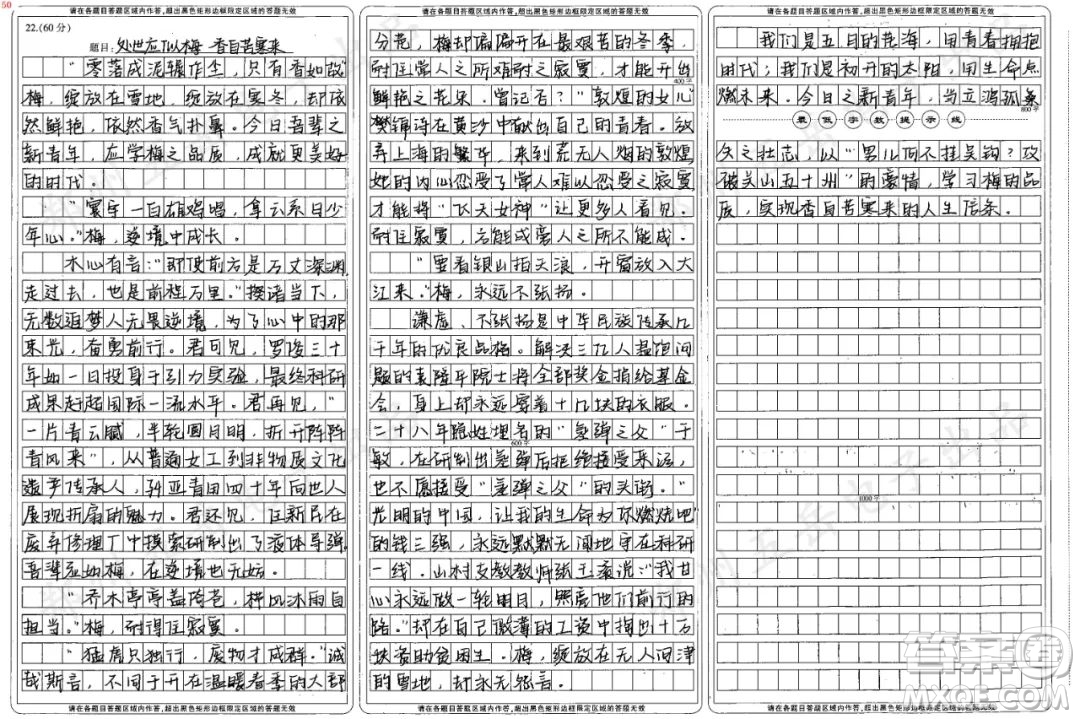 50
请在各题目答题区域内作答,超出黑色矩形边框限定区域的答题无效
22.(60分)
题目:处世应似梅 香自苦寒来
“零落成泥辗作尘,只有香如故”
梅,绽放在雪地,绽放在寒冬,却依
然鲜艳,依然香气扑鼻。今日吾辈之
新青年,应学梅之品质,成就更美好
的时代。
“寰宇一白雄鸡唱,拿云系日少
年心。”梅,逆境中成长。
木心有言:“即使前方是万丈深渊,
走过去,也是前程万里。”揆诸当下,
无数追梦人无畏逆境,为了心中的那
束光,奋勇前行。君可见,罗俊三十
年如一日投身于引力实验,最终科研
成果赶超国际一流水平。君再见,“
一片青云腻,半轮圆月明,折开阵阵
清风来”,从普通女工到非物质文化
遗产传承人,张亚青用四十年向世人
展现折扇的魅力。君还见,任新民在
废弃修理厂中摸索研制出了液体导弹。
吾辈应如梅,在逆境也无妨。
“乔木亭亭盖苍苍,栉风沐雨自
担当。”梅,耐得住寂寞。
“猛虎只独行,废物才成群。”诚
哉斯言,不同于开在温暖春季的大部
请在各题目答题区域内作答,超出黑色矩形边框限定区域的答题无效
请在各题目答题区域内作答,超出黑色矩形边框限定区域的答题无效
分花,梅却偏偏开在最艰苦的冬季,
耐住常人之所难耐之寂寞,才能开出
400字
鲜艳之花朵。曾记否?“敦煌的女儿”
樊锦诗在黄沙中献出自己的青春。放
弃上海的繁华,来到荒无人烟的敦煌
她的内心忍受了常人难以忍耐之寂寞
才能将“飞天女神”让更多人看见。
耐住寂寞,方能成常人之所不能成。
“要看银山拍天浪,开窗放入大
江来。”梅,永远不张扬。
谦虚、不张扬是中华民族传承几
千年的优良品梅。解决三亿人温饱问
题的袁隆平院士将全部奖金捐给基金
会,身上却永远穿着十几块的衣服。
二十八年隐姓埋名的“氢弹之父”于
600字
敏,在研制出氢弹后拒绝接受采访,
也不愿接受“氢弹之父”的头衔。“
光明的中国,让我的生命为你燃烧吧”
的钱三强,永远默默无闻地守在科研
一线。山村支教教师张玉滚说:“我甘
心永远做一轮明月,照亮他们前行的
路。”却在自己微薄的工资中掏出十万
扶资助贫困生。梅,绽放在无人问津
的雪地,却永无怨言。
请在各题目答题区域内作答,超出黑色矩形边框限定区域的答题无效
请在各题目答题区域内作答,超出黑色矩形边框限定区域的答题无效
我们是五月的花海,用青春拥抱
时代;我们是初升的太阳,用生命点
燃未来。今日之新青年,当立鸿孤桑
800字
最低字数提示线
矢之壮志,以“男儿何不挂吴钩?攻
破关山五十州”的豪情,学习梅的品
质,实现香自苦寒来的人生信条。
1000字
请在各题目答题区域内作答,超出黑色矩形边框限定区域的答题无效
答案圈
MXQE.COM